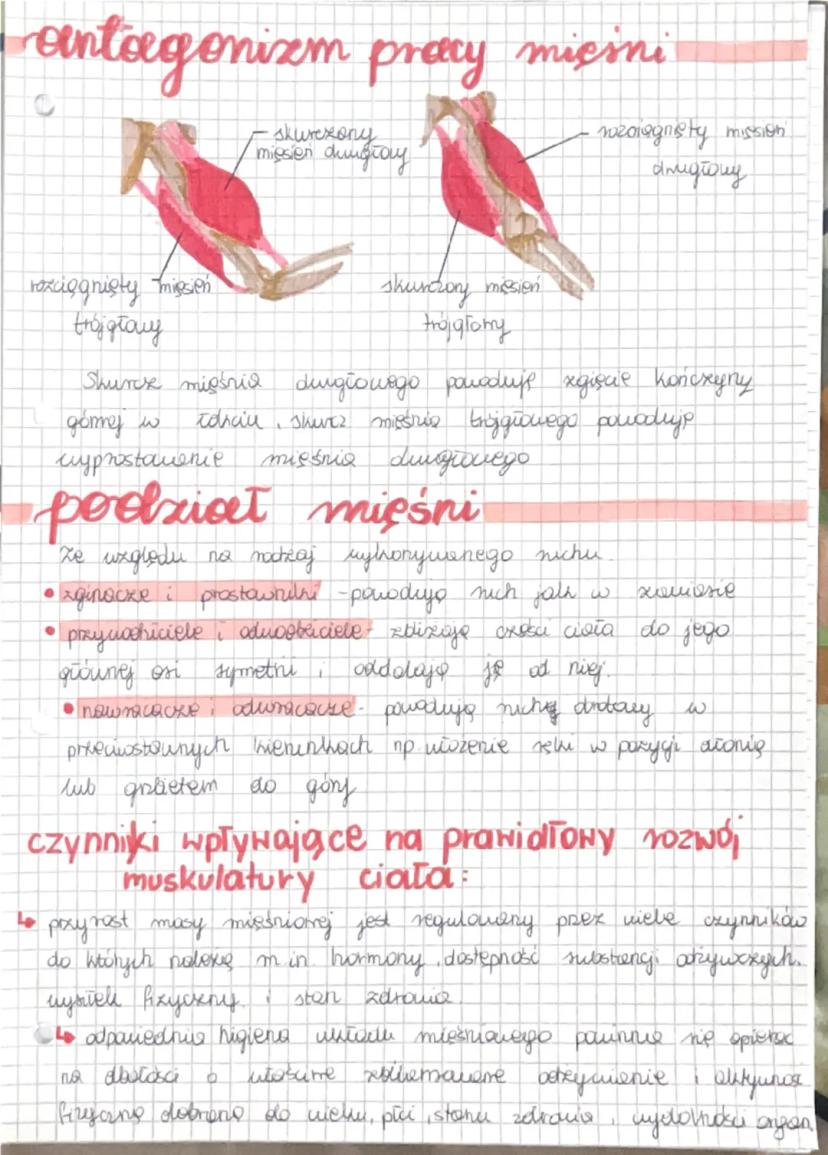 antagonizm pracy mięśni
skurczony
mięsień dwugłowy
rozciągnięty mięsień
dwugłowy
rozciągnięty mięsień
trójgłowy
skurczony mięsień
trójgłowy
Skurcz mięśnia dwugłowego powoduję zgięcie kończyny
górnej w łokciu, skurcz mięśnia trójgłowego powoduję
wyprostowanie mięśnia dwugłowego
podział mięśni
ze względu na rodzaj wykonywanego ruchu.
• zginacze i prostowniki - powodują ruch jak w zawiasie
• przywodziciele i odwodziciele - zbliżają części ciała do jego
głównej osi symetrii i oddalają ję od niej.
• nawracacze i odwracacze - powodują ruchy obrotowy w
przeciwstawnych kierunkach np ułożenie ręki w pozycji dłonią
lub grzbietem do góry
czynniki wpływające na prawidłowy rozwój
muskulatury ciała:
↳ przyrost masy mięśniowej jest regulowany przez wiele czynników
do których należą m.in. hormony, dostępność substancji odżywczych,
wysiłek fizyczny i stan zdrowia.
↳ odpowiednia higiena układu mięśniowego powinna się opierać
na dbałości o właściwe zbilansowane odżywienie i aktywnoś
fizyczną dobraną do wieku, płci, stanu zdrowia, wydolności organ